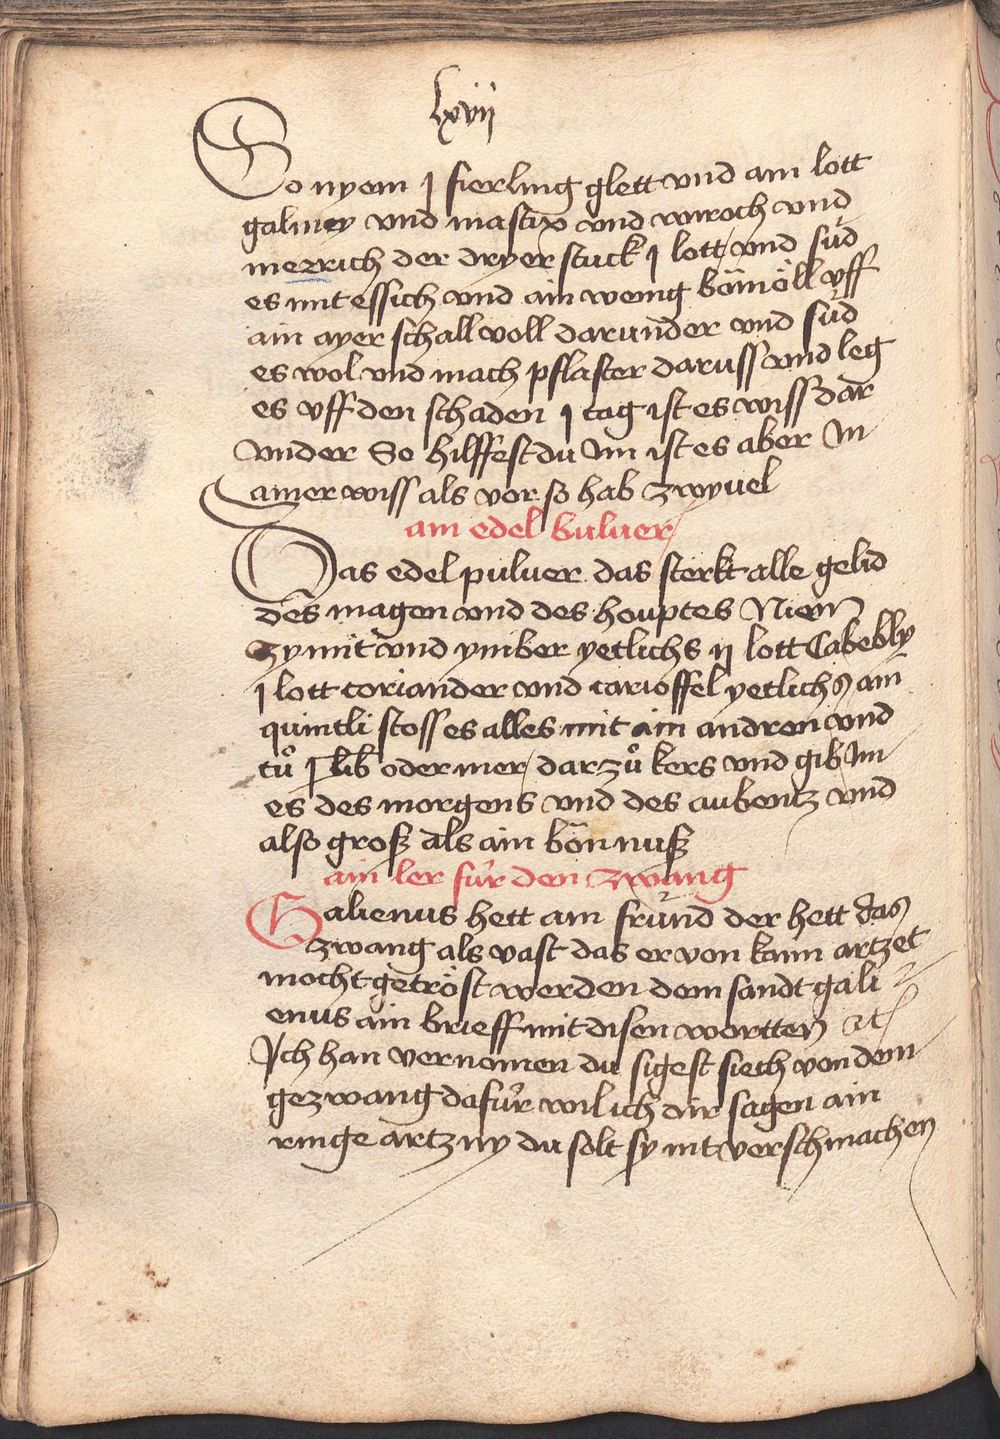 lxvij
So nyem j fierling glett vnd ain lott
galmey vnd mastix vnd wiroch vnd
merrich der dryer stuck j lott vnd sùd
es mit essich vnd ain wenig bömöll vff
ain ayer schall voll darunder vnd sùd
es wol vnd mach pflaster daruss vnnd leg
es vff den schaden j tag ist es wiss dar
vnder So hilffest du Im ist es aber In
ainer wiss als vor so hab zwyuel
ain edel buluer
Das edel puluer das sterkt alle gelid
des magen vnd des houptes Niem
zymit vnd ymber yetlichs ij lott Cabebly
j lott coriander vnd carioffel yetlichs ain
quintli stoss es alles mit ain andren vnd
tuͦ j lib oder mer darzuͦ kers vnd gib Im
es des morgens vnd des aubentz vnd
also groß als ain bön nuß
ain ler fùr den zwang
Galienus hett ain frùnd der hett das
zwang als vast das er von kain artzet
mocht getröst werden dem sandt gali
enus ain brieff mit disen wortten etc
Ich han vernomen du sigest siech von dem
gezwang dafùr wil ich dir sagen ain
ringe artzny du solt sy nit verschmachen